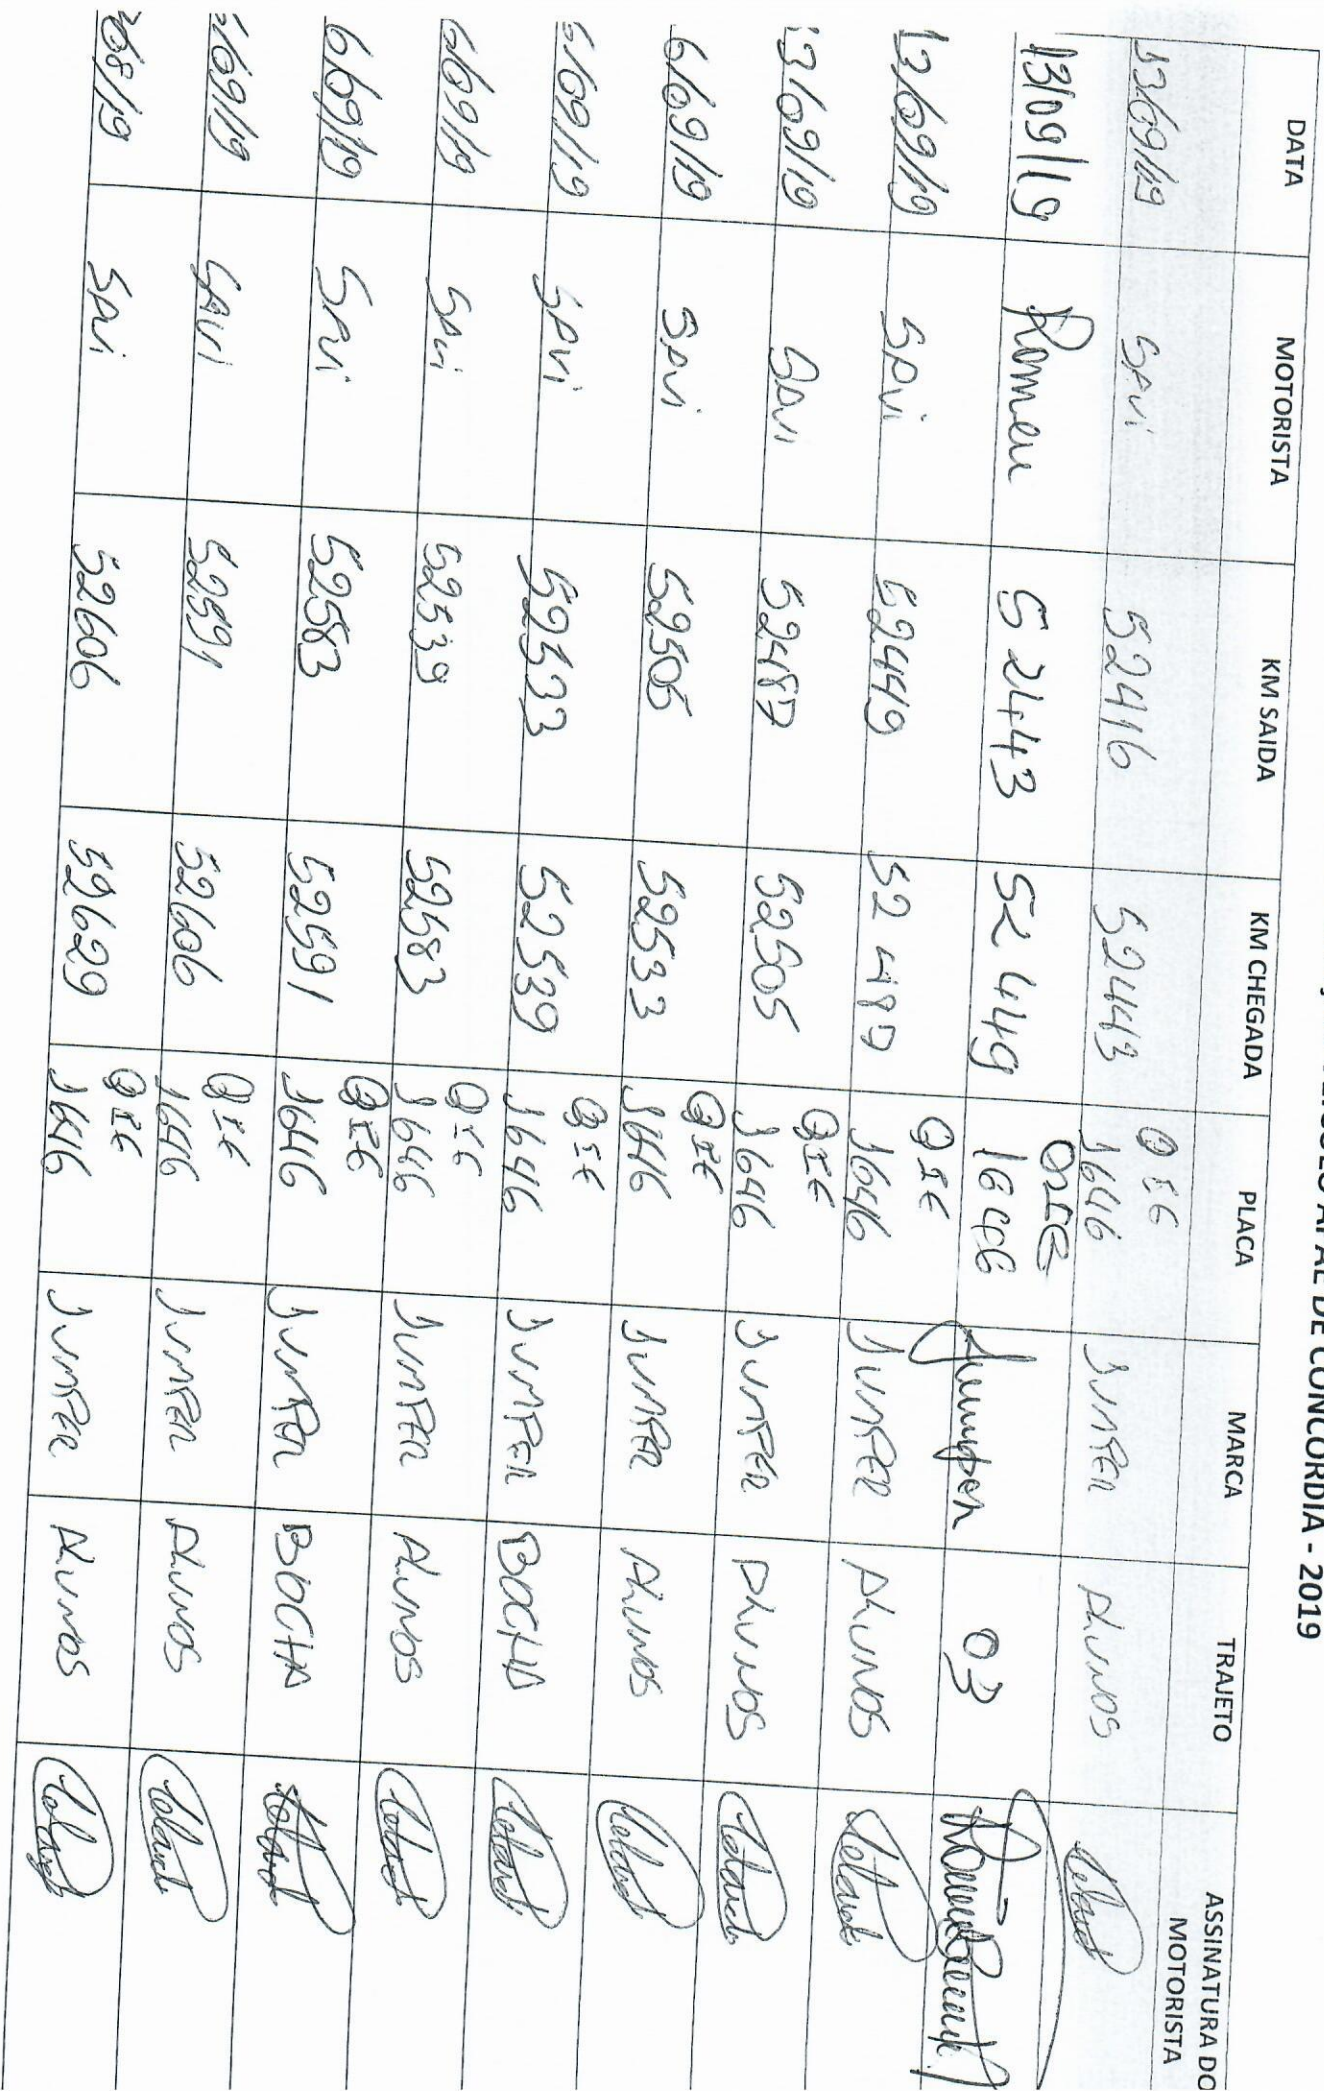 DE CONCORDIA - 2019
DATA MOTORISTA KM SAIDA KM CHEGADA PLACA MARCA TRAJETO ASSINATURA DO MOTORISTA
13/09/19 SAVI 52416 52443 QIE 1646 JUMPER ALUNOS
13/09/19 Romeu 52443 52449 QIE 1646 Jumper 03
13/09/19 SAVI 52449 52487 QIE 1646 JUMPER ALUNOS
13/09/19 SAVI 52487 52505 QIE 1646 JUMPER ALUNOS
6/09/19 SAVI 52505 52533 QIE 1646 JUMPER ALUNOS
6/09/19 SAVI 52533 52539 QIE 1646 JUMPER BOCHA
6/09/19 SAVI 52539 52583 QIE 1646 JUMPER ALUNOS
6/09/19 SAVI 52583 52591 QIE 1646 JUMPER BOCHA
/09/19 SAVI 52591 52606 QIE 1646 JUMPER ALUNOS
/19 SAVI 52606 52629 QIE 1646 JUMPER ALUNOS